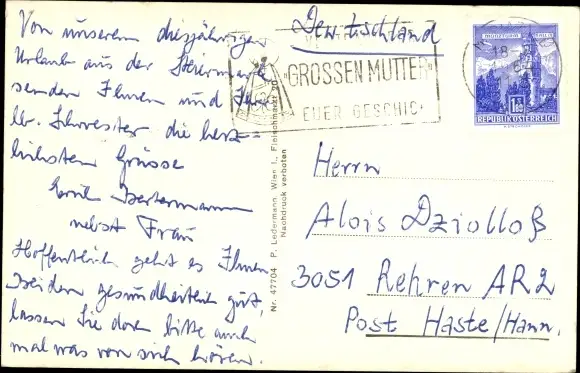 Von unserem diesjährigen
Urlaub aus der Steiermark
senden Ihnen und Ihrer
lb. Schwester die herz-
lichsten Grüsse
nebst Frau
Hoffentlich geht es Ihnen
beiden gesundheitlich gut,
lassen Sie doch bitte auch
mal was von sich hören.
Nr. 47704 P. Ledermann, Wien I., Fleischmarkt 20
Nachdruck verboten
Deutschland
GROSSEN MUTTER
EUER GESCHIC
18
MÜNZTURM HALL
1.50
REPUBLIK ÖSTERREICH
Herrn
Alois Dziolloß
3051 Rehren AR2
Post Haste/Hann.